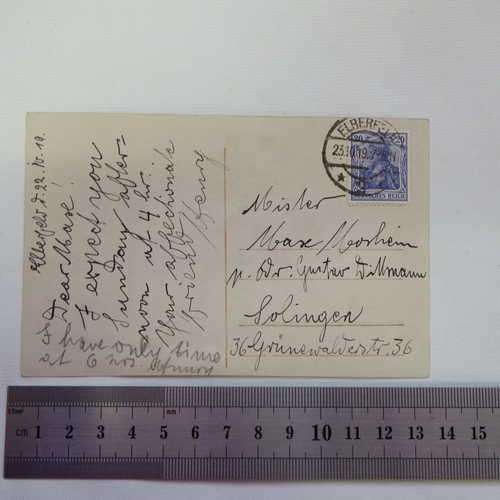 Elberfeld d. 22. IV. 19.
Dear Max!
I expect you
Sunday after-
noon at 4 hr.
Your affectionate
friend Henry
I have only time
at 6 hrs.
ELBERFELD
23.10.19.7-8
DEUTSCHES REICH
Mister
Max Morheim
p. Adr. Gustav Dillmann
Solingen
36 Grünewalderstr. 36
cm 1 2 3 4 5 6 7 8 9 10 11 12 13 14 15
mm